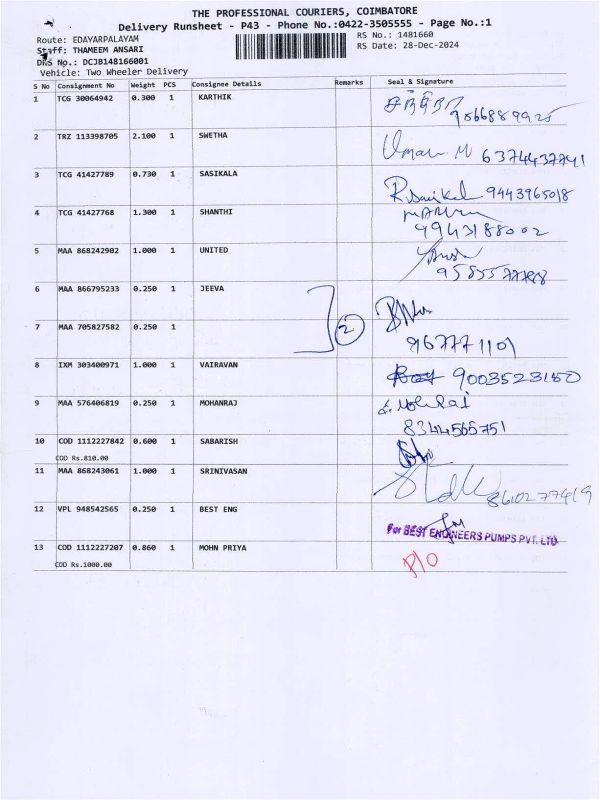 THE PROFESSIONAL COURIERS, COIMBATORE
Delivery Runsheet - P43 - Phone No.:0422-3505555 - Page No.:1
Route: EDAYARPALAYAM RS No.: 1481660
Staff: THAMEEM ANSARI RS Date: 28-Dec-2024
DRS No.: DCJB148166001
Vehicle: Two Wheeler Delivery
S No Consignment No Weight PCS Consignee Details Remarks Seal & Signature
1 TCG 30064942 0.300 1 KARTHIK
2 TRZ 113398705 2.100 1 SWETHA 6374437741
3 TCG 41427789 0.730 1 SASIKALA 9443965018
4 TCG 41427768 1.300 1 SHANTHI
9943188002
5 MAA 868242902 1.000 1 UNITED
6 MAA 866795233 0.250 1 JEEVA
2
7 MAA 705827582 0.250 1
967771101
8 IXM 303400971 1.000 1 VAIRAVAN 9003523150
9 MAA 576406819 0.250 1 MOHANRAJ
8344565751
10 COD 1112227842 0.600 1 SABARISH
COD Rs.810.00
11 MAA 868243061 1.000 1 SRINIVASAN 8610277419
12 VPL 948542565 0.250 1 BEST ENG
For BEST ENGINEERS PUMPS PVT. LTD
13 COD 1112227207 0.860 1 MOHN PRIYA P/O
COD Rs.1000.00